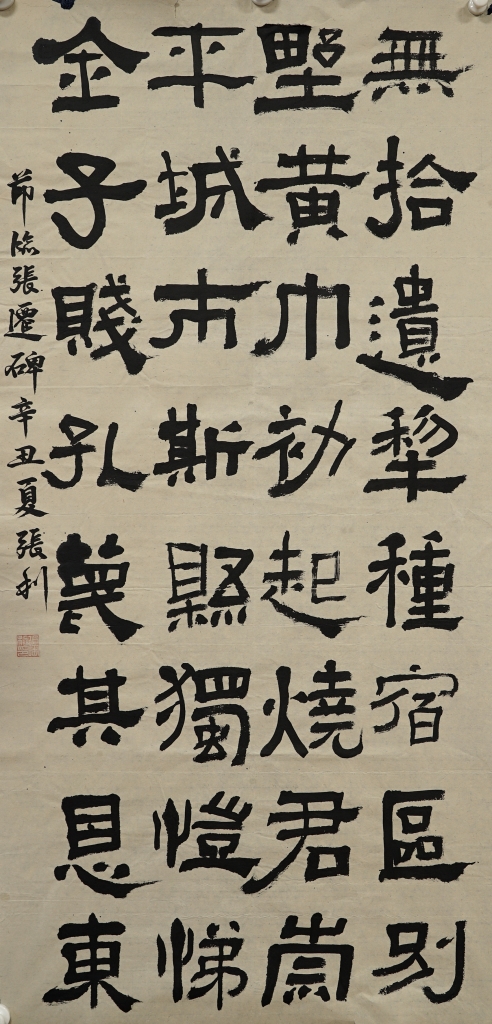 無拾遺犂種宿區别
野黃巾初起燒君崇
平城市斯縣獨愷悌
金子賤孔蔑其恩東
節臨張遷碑辛丑夏張利